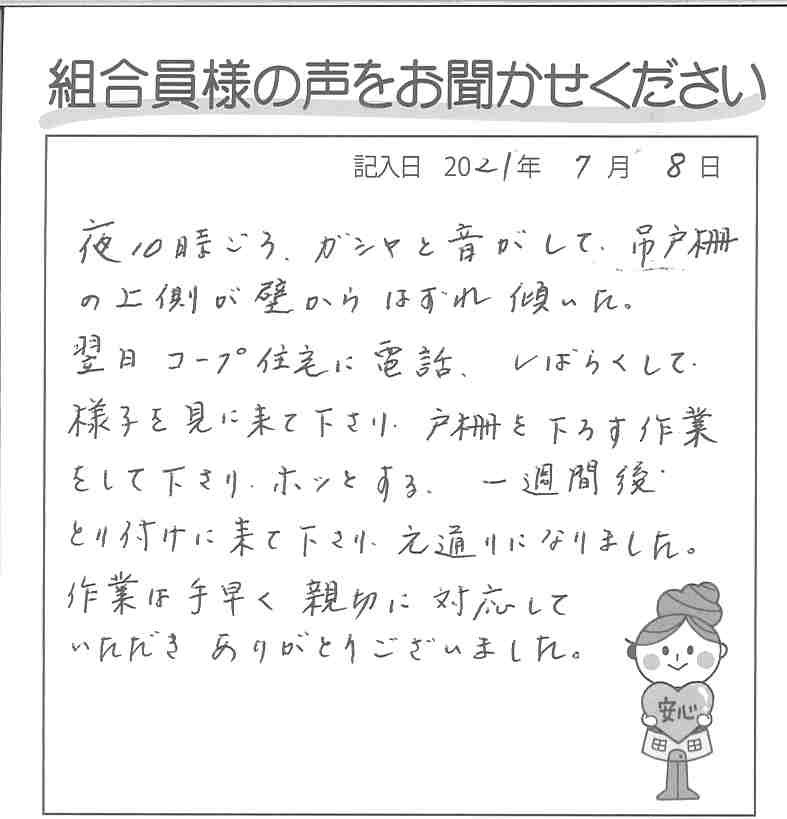 組合員様の声をお聞かせください
記入日 2021年 7月 8日
夜10時ごろ、ガシャと音がして、吊戸棚
の上側が壁からはずれ傾いた。
翌日コープ住宅に電話、しばらくして、
様子を見に来て下さり、戸棚を下ろす作業
をして下さり、ホッとする、一週間後、
とり付けに来て下さり、元通りになりました。
作業は手早く親切に対応して
いただきありがとうございました。
安心